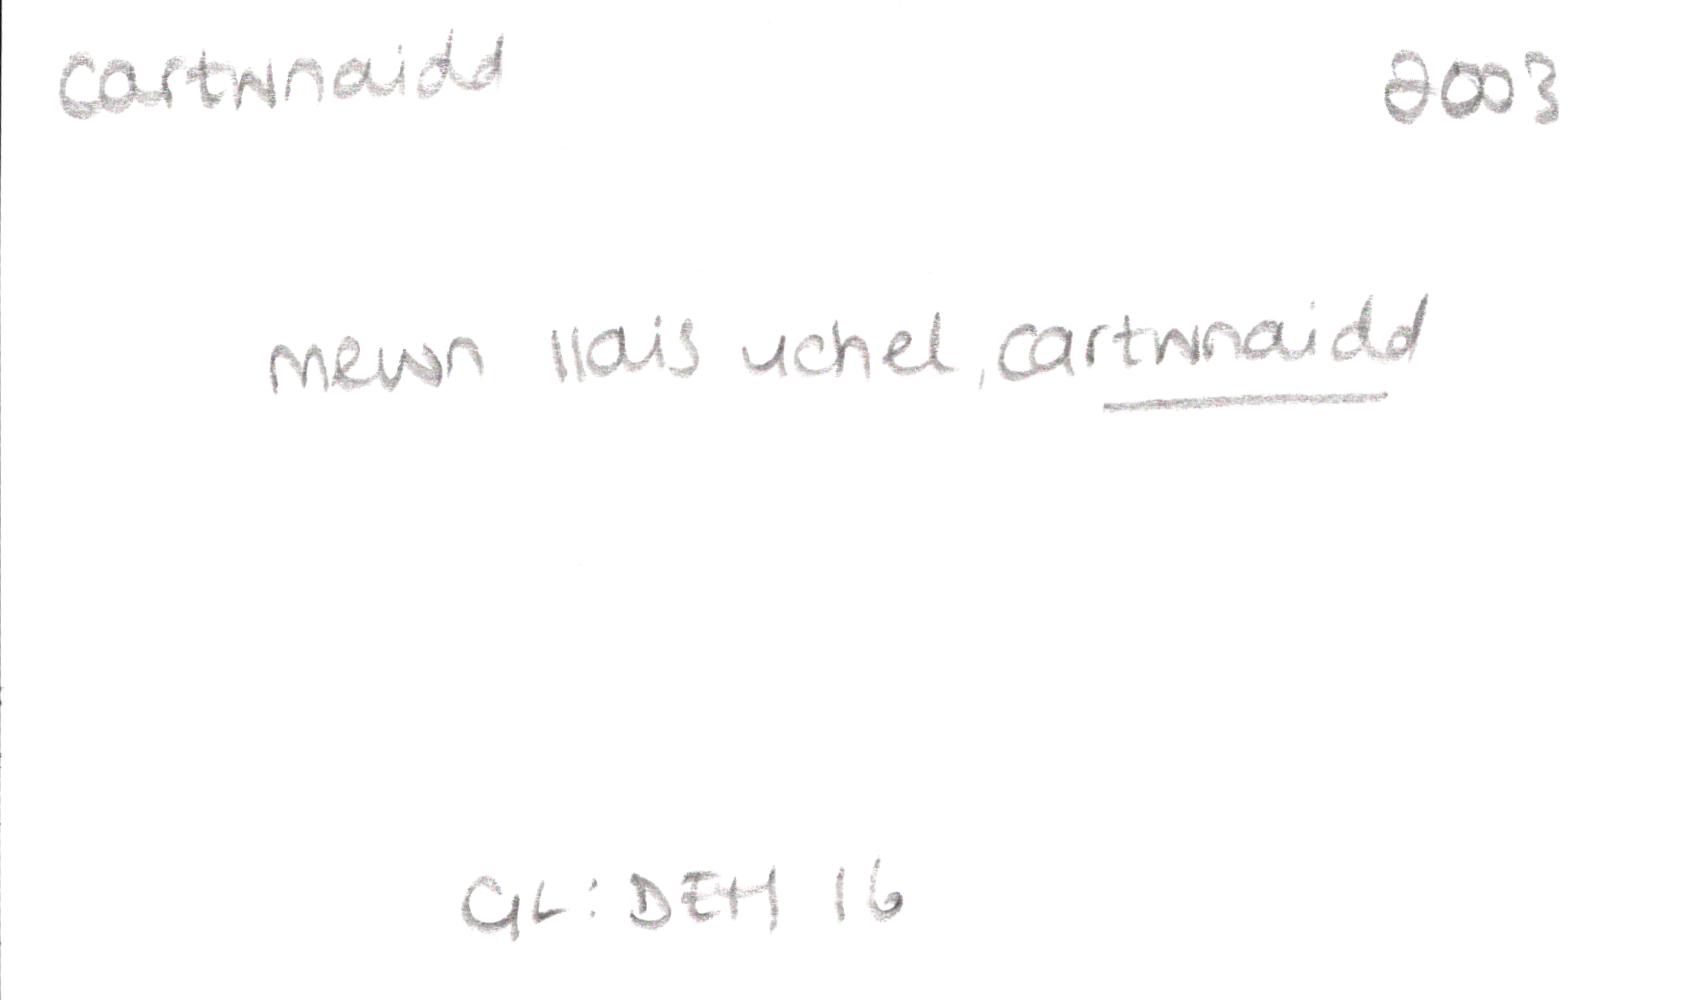 cartwnaidd 2003
mewn llais uchel, cartwnaidd
GL: DEH 16